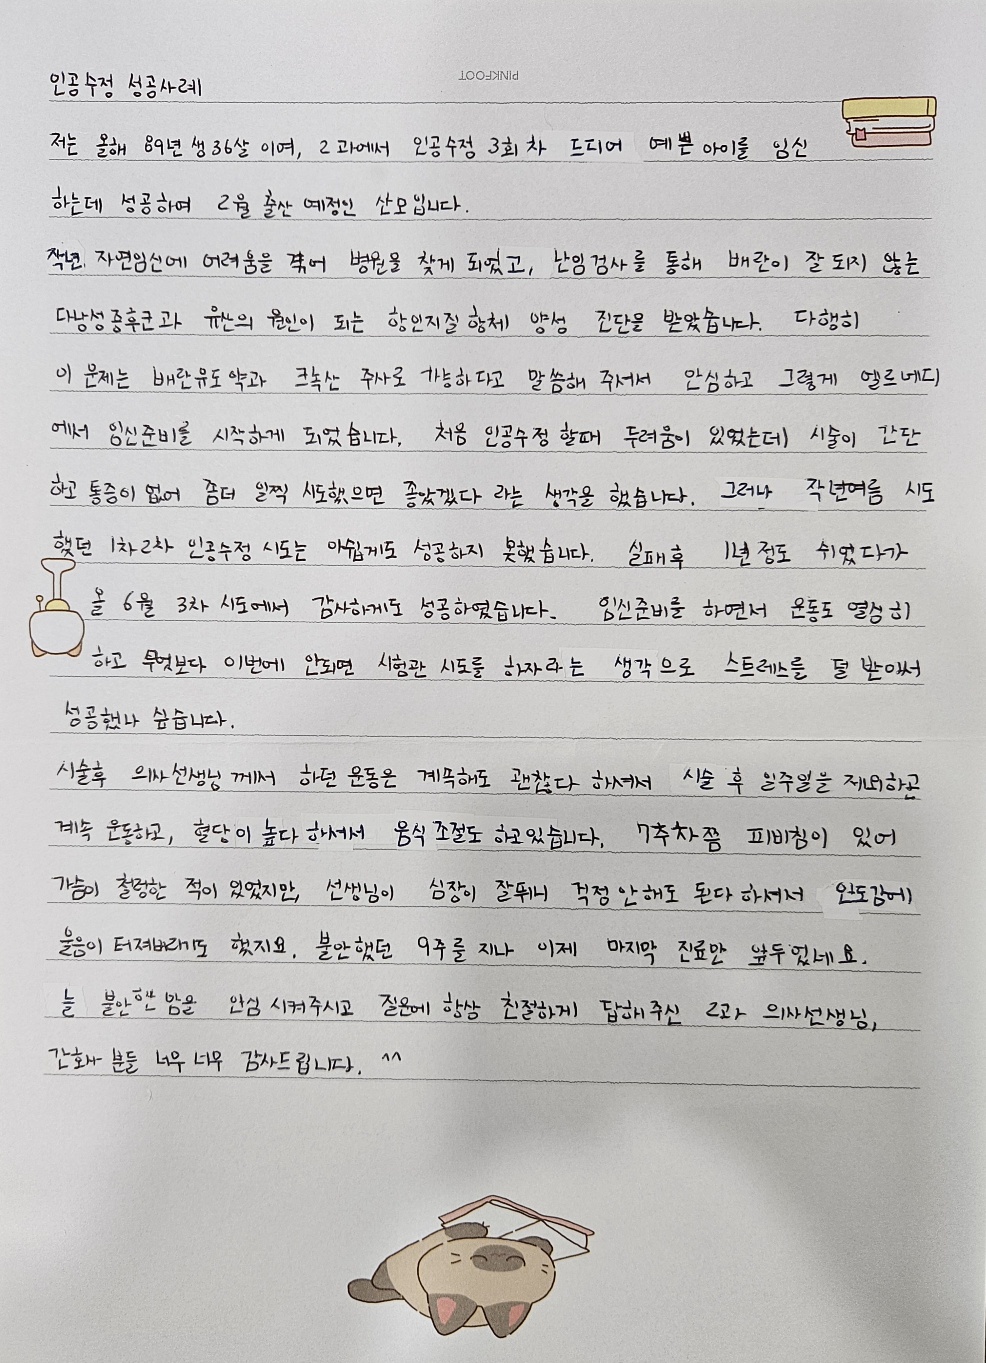 인공수정 성공사례
PINKFOOT
저는 올해 89년 생 36살 이며, 2과에서 인공수정 3회 차 드디어 예쁜 아이를 임신
하는데 성공하여 2월 출산 예정인 산모입니다.
작년 자연임신에 어려움을 겪어 병원을 찾게 되었고, 난임검사를 통해 배란이 잘 되지 않는
다낭성증후군과 유산의 원인이 되는 항인지질 항체 양성 진단을 받았습니다. 다행히
이 문제는 배란유도약과 크녹산 주사로 가능하다고 말씀해 주셔서 안심하고 그렇게 엘르메디
에서 임신준비를 시작하게 되었습니다. 처음 인공수정 할때 두려움이 있었는데 시술이 간단
하고 통증이 없어 좀더 일찍 시도했으면 좋았겠다 라는 생각을 했습니다. 그러나 작년여름 시도
했던 1차2차 인공수정 시도는 아쉽게도 성공하지 못했습니다. 실패후 1년 정도 쉬었다가
올 6월 3차 시도에서 감사하게도 성공하였습니다. 임신준비를 하면서 운동도 열심히
하고 무엇보다 이번에 안되면 시험관 시도를 하자라는 생각으로 스트레스를 덜 받아서
성공했나 싶습니다.
시술후 의사선생님 께서 하던 운동은 계속해도 괜찮다 하셔서 시술 후 일주일을 제외하곤
계속 운동하고, 혈당이 높다 하셔서 음식 조절도 하고있습니다. 7주차쯤 피비침이 있어
가슴이 철렁한 적이 있었지만, 선생님이 심장이 잘뛰니 걱정 안해도 된다 하셔서 안도감에
울음이 터져버리기도 했지요. 불안했던 9주를 지나 이제 마지막 진료만 앞두었네요.
늘 불안한 맘을 안심 시켜주시고 질문에 항상 친절하게 답해주신 2과 의사선생님,
간호사 분들 너무 너무 감사드립니다. ^^